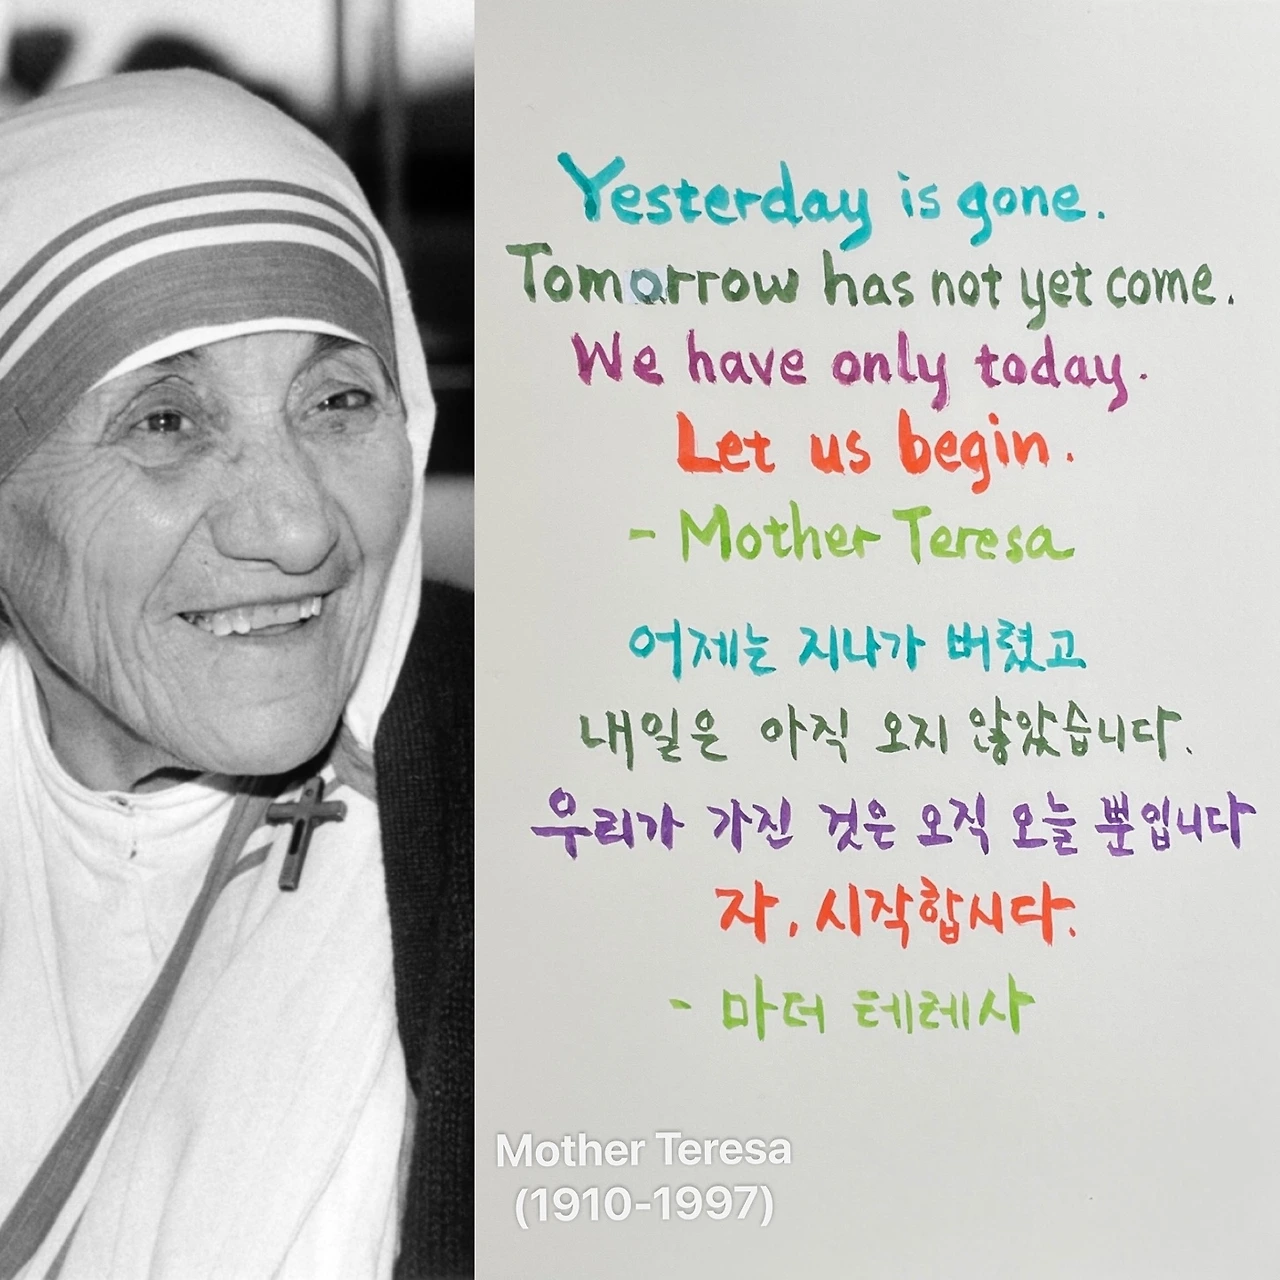 Yesterday is gone.
Tomorrow has not yet come.
We have only today.
Let us begin.
- Mother Teresa
어제는 지나가 버렸고
내일은 아직 오지 않았습니다.
우리가 가진 것은 오직 오늘 뿐입니다
자, 시작합시다.
- 마더 테레사
Mother Teresa
(1910-1997)